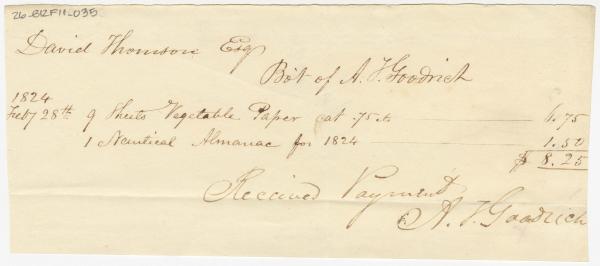 26-B12F11-035
David Thomson Esq
Bot of A. T. Goodrich
1824
Feby 28th 9 Sheets Vegetable Paper at .75 cts 6.75
1 Nautical Almanac for 1824 1.50
$ 8.25
Received Payment
A. T. Goodrich